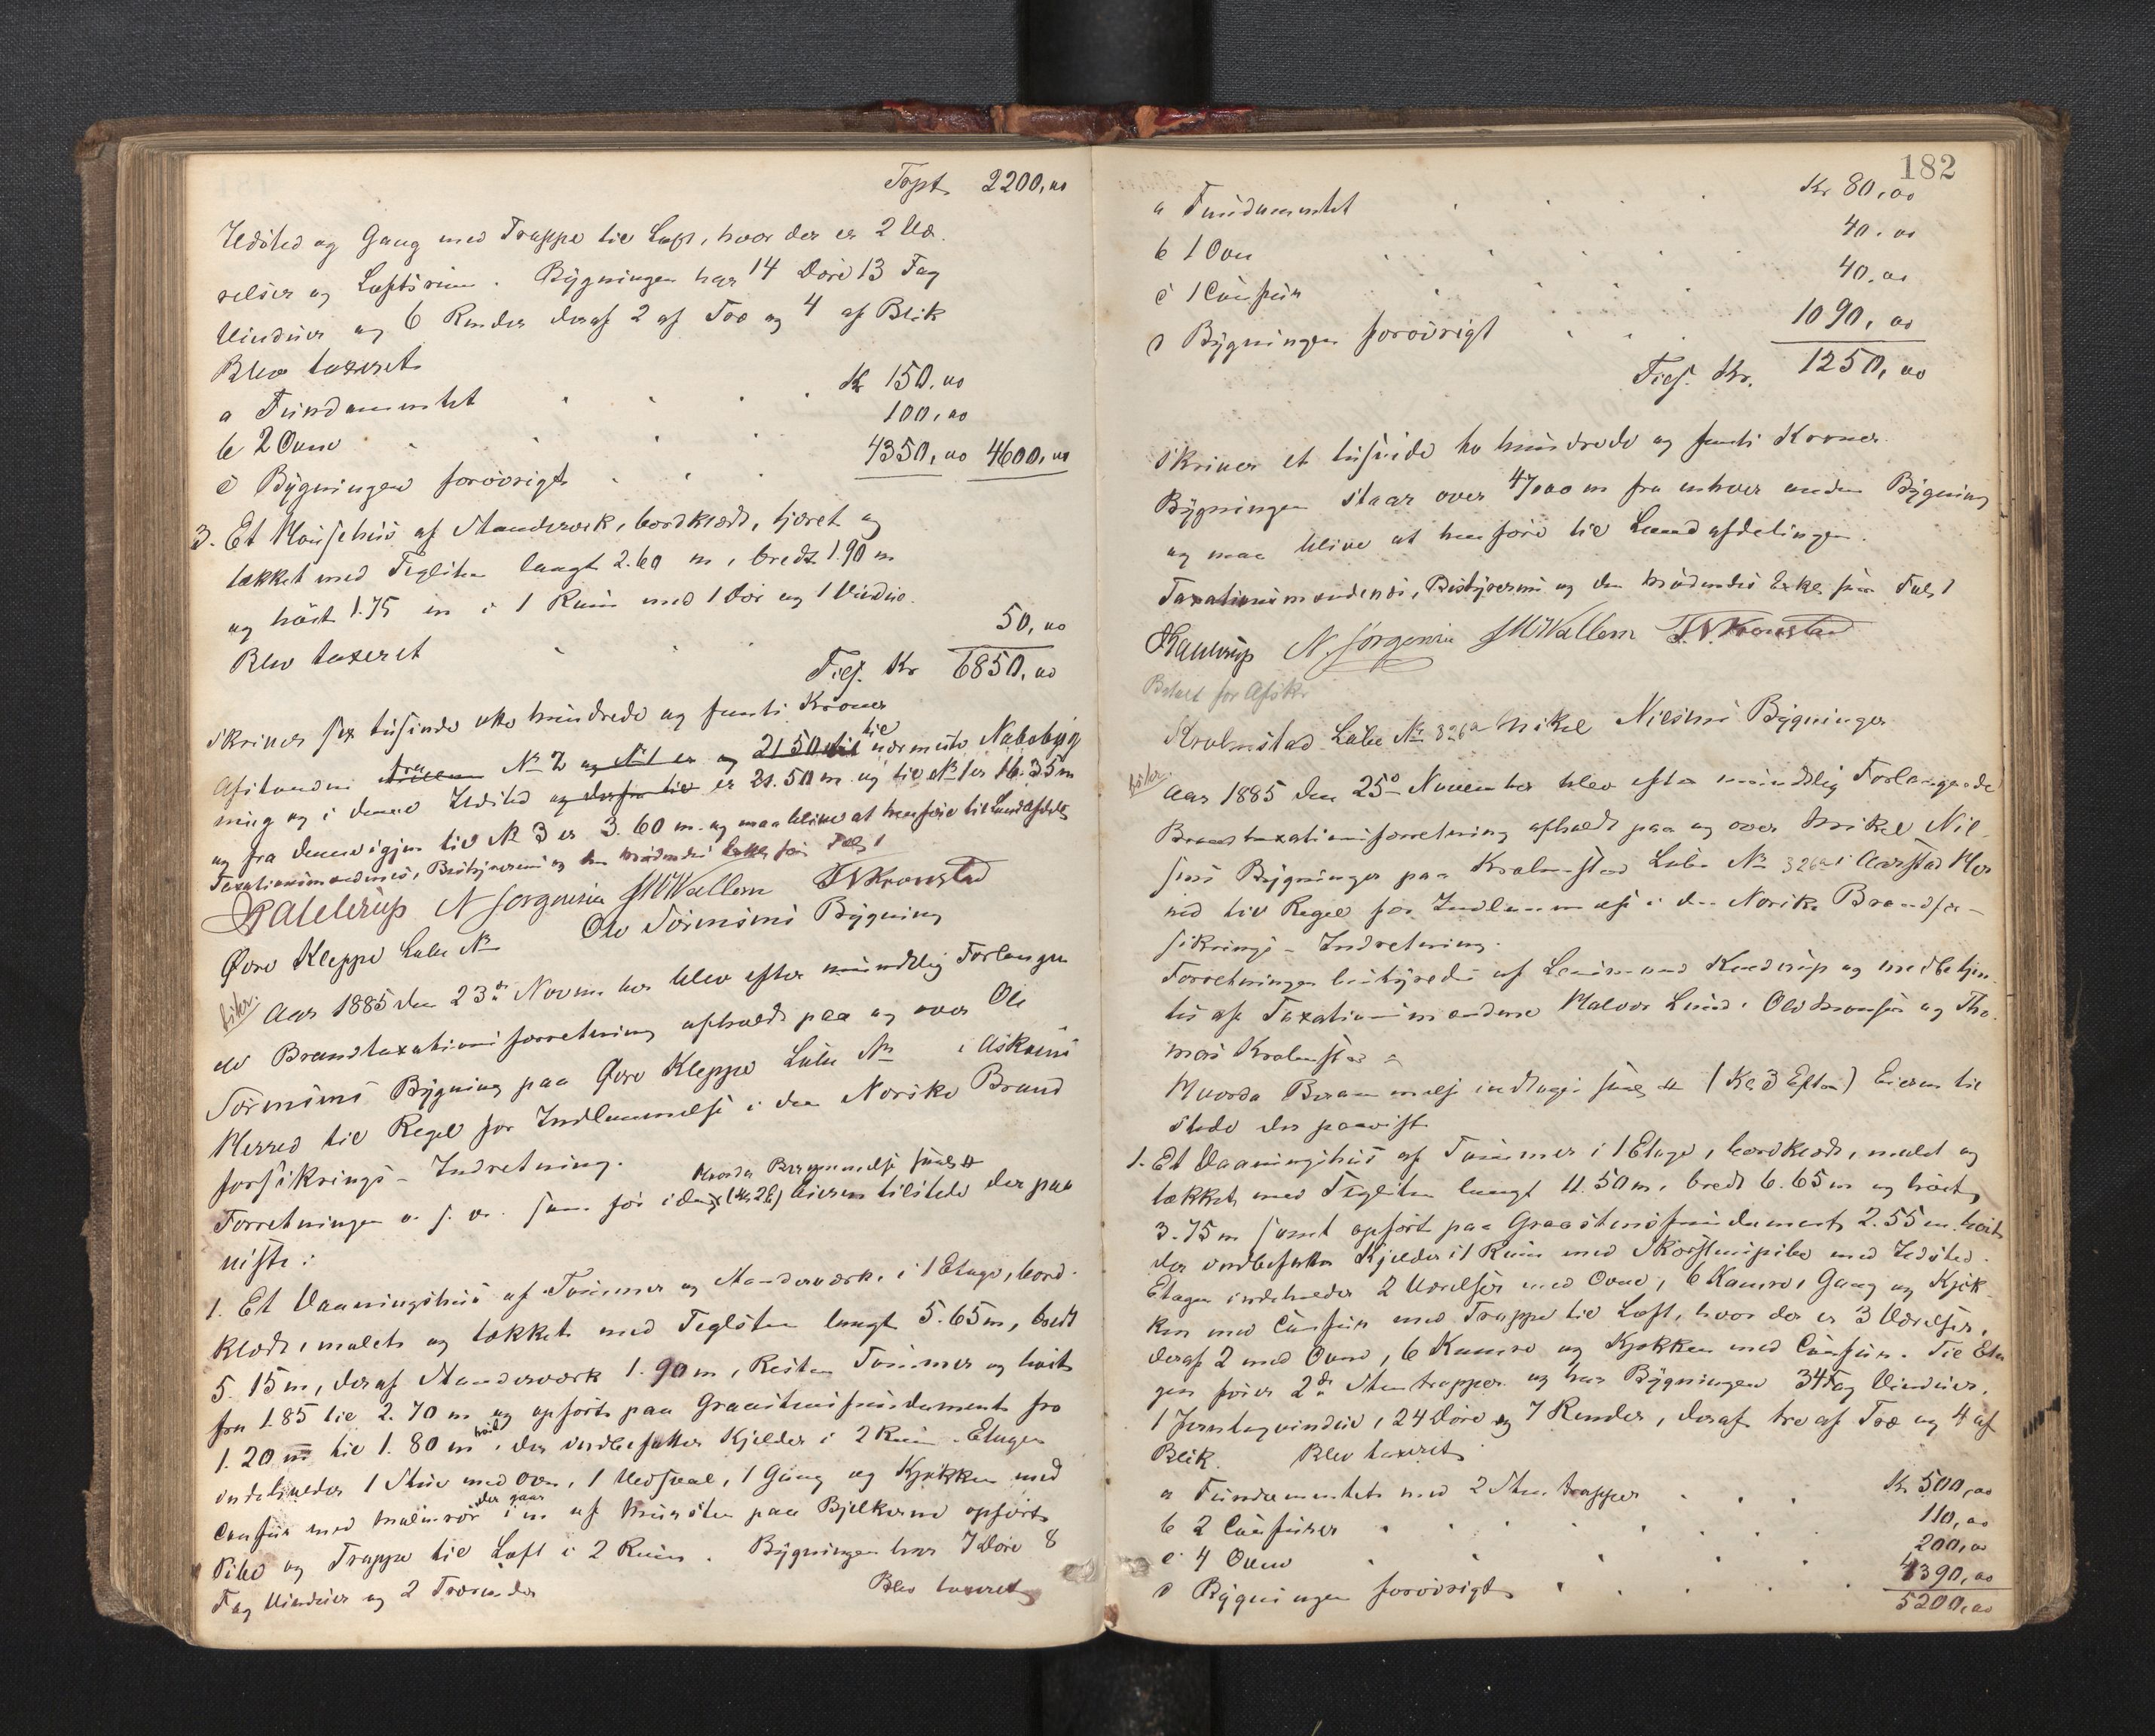 Trpt. 2200,00
Ildsted og Gang med Trappe til Loft, hvor der er 2 Væ-
relser og Loftsrum. Bygningen har 14 Döre 13 Fag
Vinduer og 6 Render deraf 2 af Træ og 4 af Blik
Blev taxeret
a Fundamentet Kr 150,00
b 2 Ovne 100,00
c Bygningen forövrigt 4350,00 4600,00
3. Et Hönsehus af Standværk, bordklædt, tjæret og
tækket med Teglsten langt 2.60 m, bredt 1.90 m
og höit 1.75 m i 1 Rum med 1 Dör og 1 Vindue.
Blev taxeret 50,00
Tils. Kr 6850,00
skriver sex tusinde otte hundrede og femti Kroner
Afstanden fra No 2 og No 1 er og 21 50 til til nærmeste Nabobyg
ning og i denne Ildsted og derfra til er 21.50 m og til No 1 er 16.35 m
og fra denne igjen til No 3 er 3.60 m. og maa blive at henføre til Landafdel.
Taxationsmændenes, Bestyrerens og den mödendes Erkl. som Fol. 1
Kaltrup N Jørgensen SMWallem TNKronstad
Øvre Kleppe Løbe No Ole Sörensens Bygning
Aar 1885 den 23de November blev efter mundtlig Forlangen
de Brandtaxationsforretning afholdt paa og over Ole
Sörensens Bygning paa Øvre Kleppe Löbe No i Askøens
Herred til Regel for Indlemmelse i den Norske Brand
forsikrings-Indretning.
Hvorda Berammelse
Forretningen o. s. v. som for i dag (Kl 2 E) Eieren tilstede der paa
viste:
1. Et Vaaningshus af Tömmer og Standværk i 1 Etage, bord-
klædt, malet og tækket med Teglsten langt 5.65 m, bredt
5.15 m, deraf Standværk 1.90 m, Resten Tömmer og höit
fra 1.85 til 2.70 m og opfört paa Graastensfundament fra
1.20 m til 1.80 m höit, der indbefatter Kjelder i 2 Rum. Etagen
indeholder 1 Stue med Ovn, 1 Vedskaal, 1 Gang og Kjökken med
Comfur med Malmrör der gaar i en af Mursten paa Bjelkerne opfört
Pibe og Trappe til Loft i 2 Rum. Bygningen har 7 Döre 8
Fag Vinduer og 2 Trærender Blev taxeret
182
a Fundamentet Kr 80,00
b 1 Ovn 40,00
c 1 Comfur 40,00
d Bygningen forövrigt 1090,00
Tils. Kr. 1250,00
skriver et tusinde to hundrede og femti Kroner.
Bygningen staar over 47,000 m fra enhver anden Bygning
og maa blive at henföre til Landafdelingen.
Taxationsmændenes, Bestyrerens og den mödendes Erkl. som Fol. 1
Kaltrup N. Jørgensen SMWallem T.N.Kronstad
Betalt for Afskr
Kralmstad Löbe No 326a Mikel Nielsens Bygninger
Aar 1885 den 25de November blev efter mundtlig Forlangende
Brandtaxationsforretning afholdt paa og over Mikel Niel-
sens Bygninger paa Kralmstad Löbe No 326a i Aarstad Her
red til Regel for Indlemmelse i den Norske Brandfor-
sikrings-Indretning.
Forretningen bestyredes af Lensmand Kaltrup og medbetjen-
tes af Taxationsmændene Halvor Lund, Ole Monsen og Tho-
mas Kralmstad
Hvorda Berammelse indtages (Kl 3 Efterm) Eieren til
stede der paaviste
1. Et Vaaningshus af Tömmer i 1 Etage, bordklædt, malet og
tækket med Teglsten langt 11.50 m, bredt 6.65 m og höit
3.75 m samt opfört paa Graastensfundament 2.55 m höit
der indbefatter Kjelder i 1 Rum med Skorstenspibe med Ildsted.
Etagen indeholder 2 Værelser med Ovne, 6 Kamre, Gang og Kjök
ken med Comfur med Trappe til Loft, hvor der er 3 Værelser,
deraf 2 med Ovne, 6 Kamre og Kjökken med Comfur. Til Eta
gen förer 2de Stentrapper og har Bygningen 34 Fag Vinduer,
1 Jerntagvindue, 24 Döre og 7 Render, deraf tre af Træ og 4 af
Blik. Blev taxeret
a Fundamentet med 2 Stentrapper Kr 500,00
b 2 Comfurer 110,00
c 4 Ovne 200,00
d Bygningen forövrigt 4390,00
5200,00